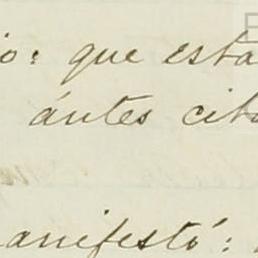 io: que esta
ántes cit
anifestó: